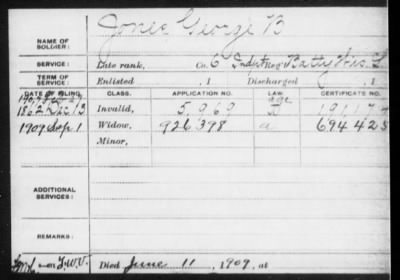 NAME OF SOLDIER: Jones George B
SERVICE: Late rank, Co. 6 Indpt Reg't Batty Wis. L.
TERM OF SERVICE: Enlisted , 1 Discharged , 1
DATE OF FILING. CLASS. APPLICATION NO. LAW. CERTIFICATE NO.
1907 age
1862 Dec 13 Invalid, 5,969
1909 Sep 1 Widow, 926398 a 694423
Minor,
ADDITIONAL SERVICES:
REMARKS:
Died June 11, 1909, at